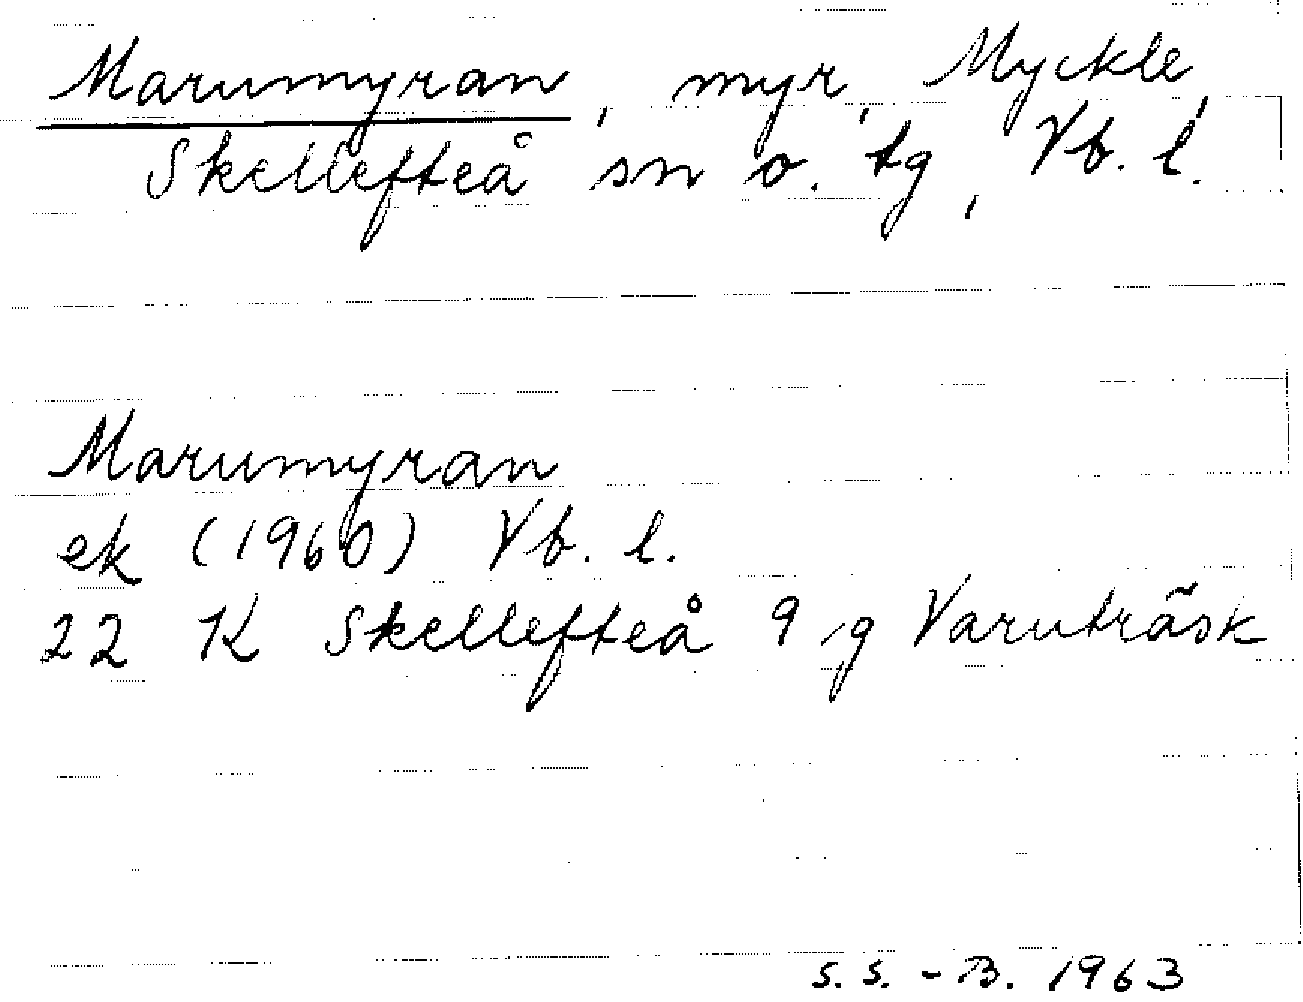 Marumyran, myr, Myckle,
Skellefteå sn o. tg, Vb. l.
Marumyran
ek (1960) Vb. l.
22 K Skellefteå 9 g Varuträsk
S. S. - B. 1963